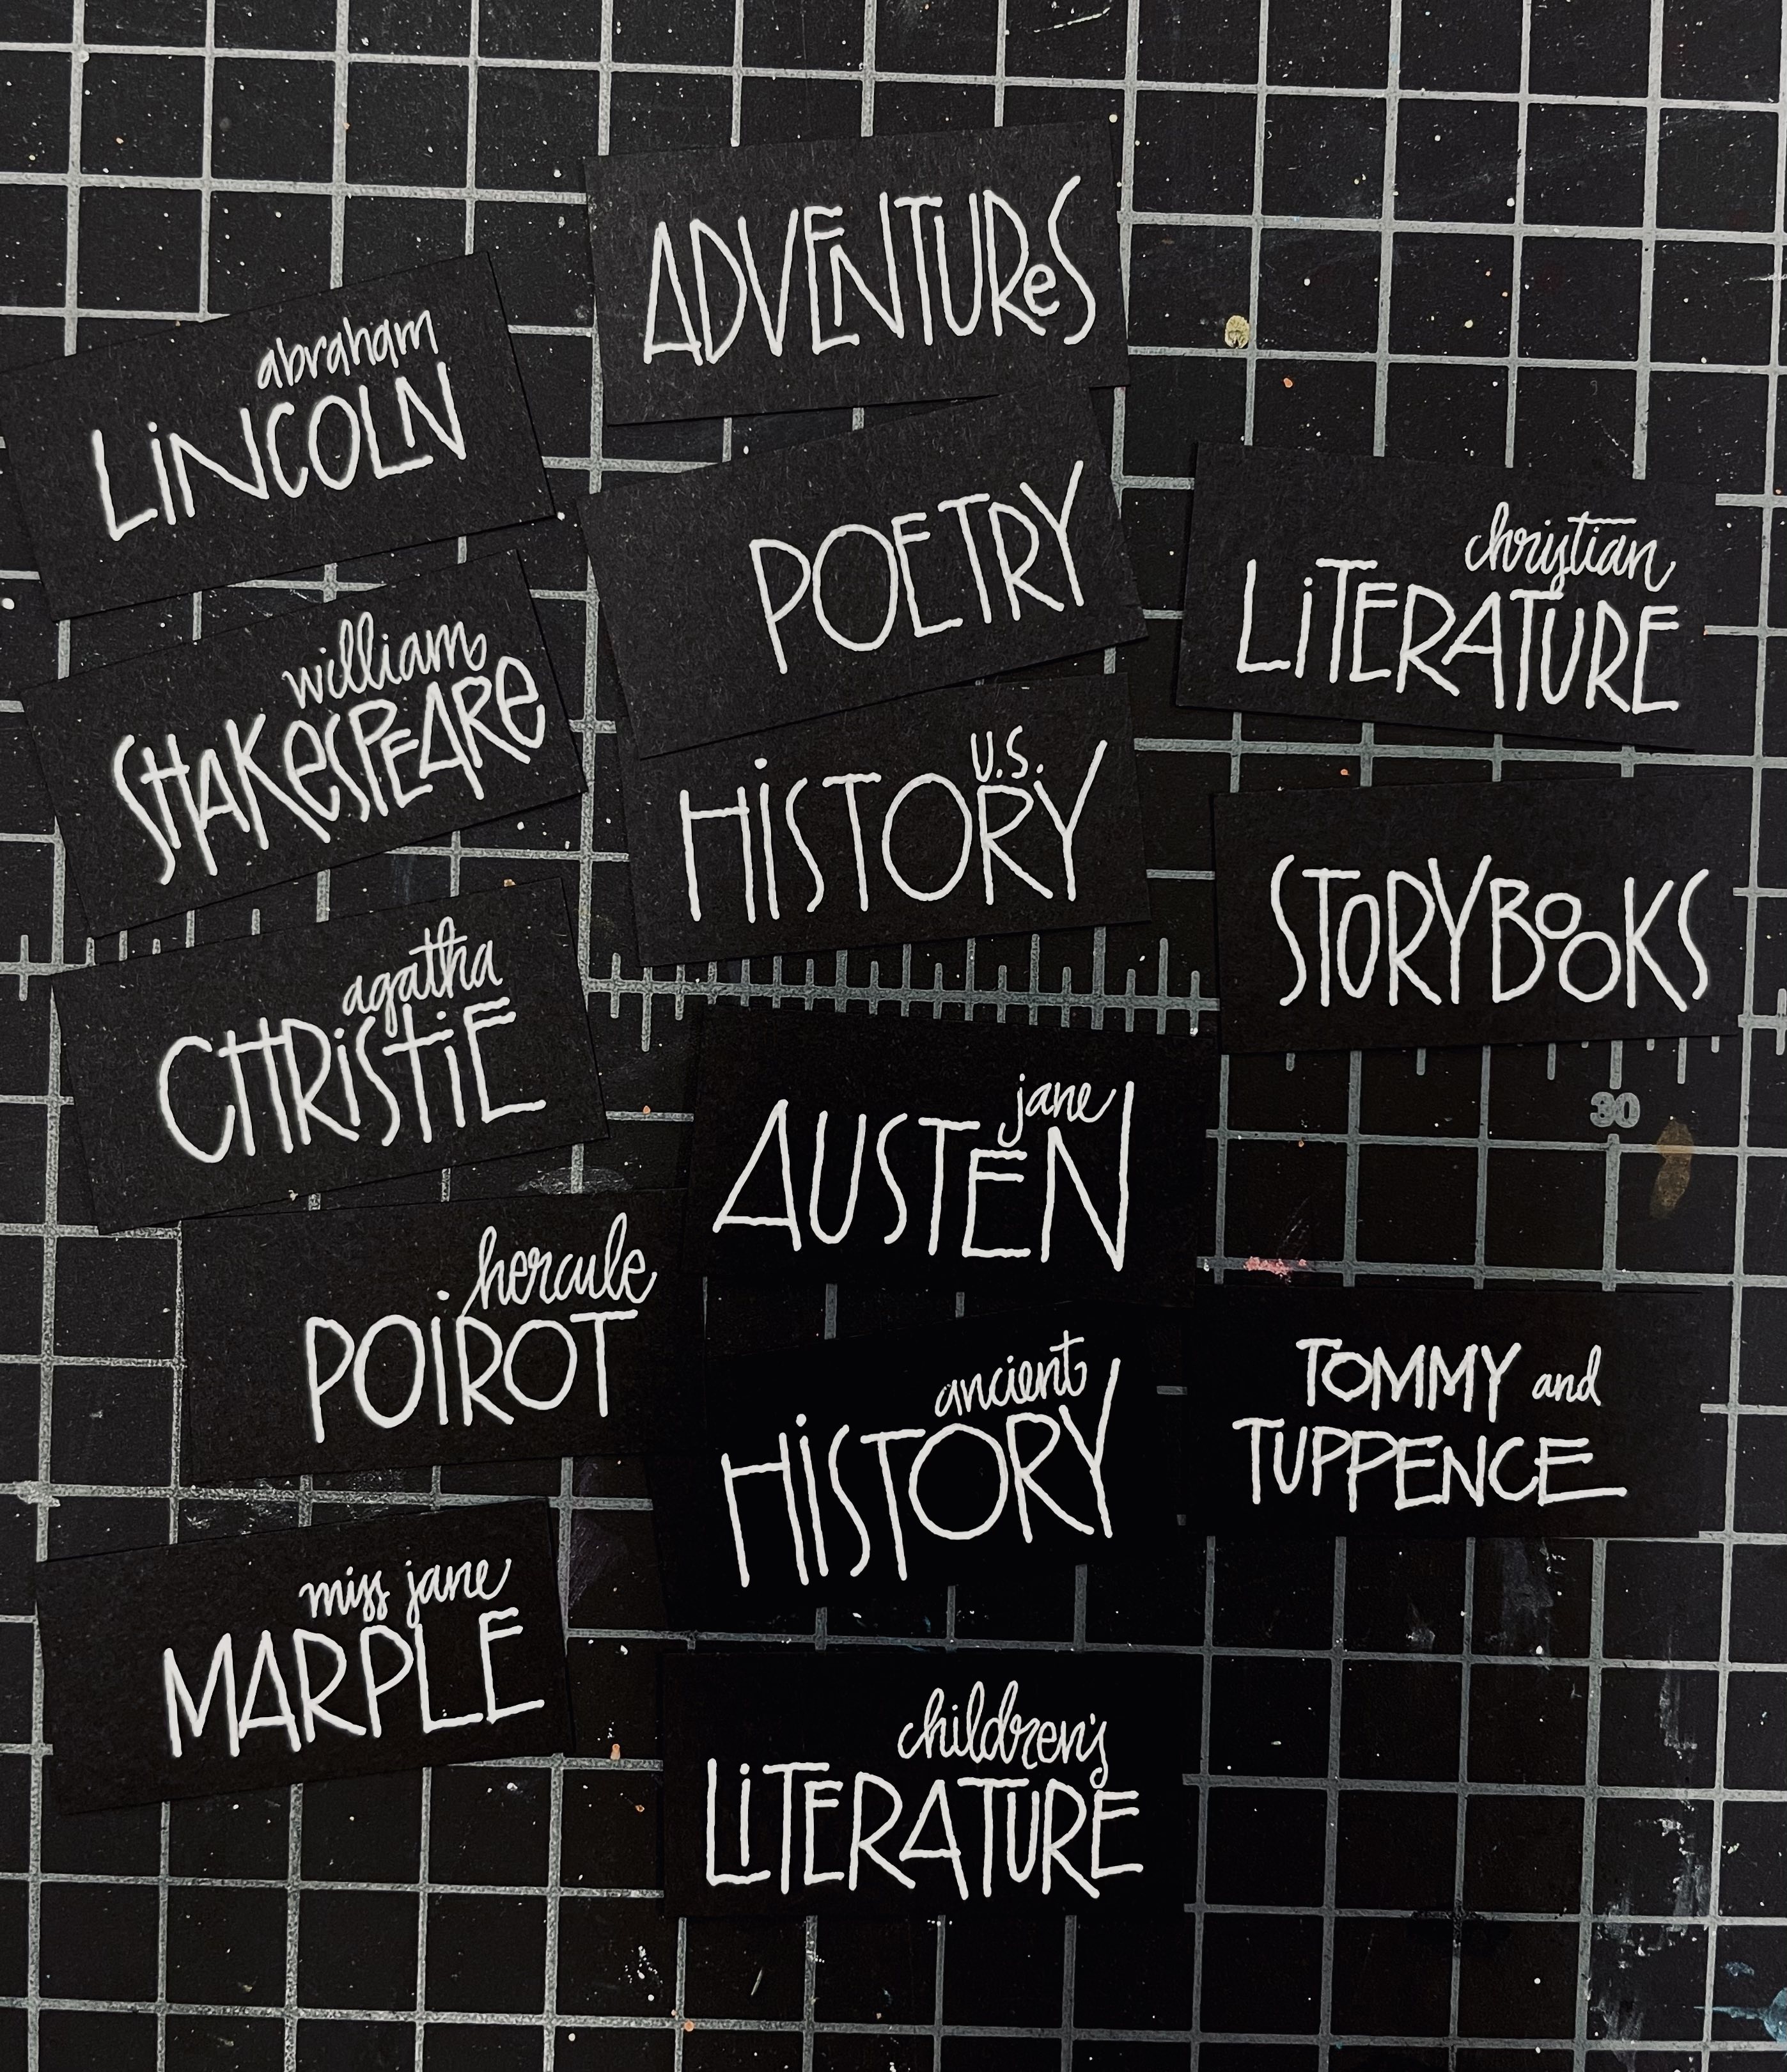 ADVENTUReS
abraham
LiNCOLN
POETRY
christian
LiTERATURE
william
SHAKeSPEARe
U.S.
HiSTORY
STORYBOOKS
agatha
CHRiSTiE
jane
AUSTEN
30
hercule
POiROT
ancient
HiSTORY
TOMMY and
TUPPENCE
miss jane
MARPLE
children's
LiTERATURE